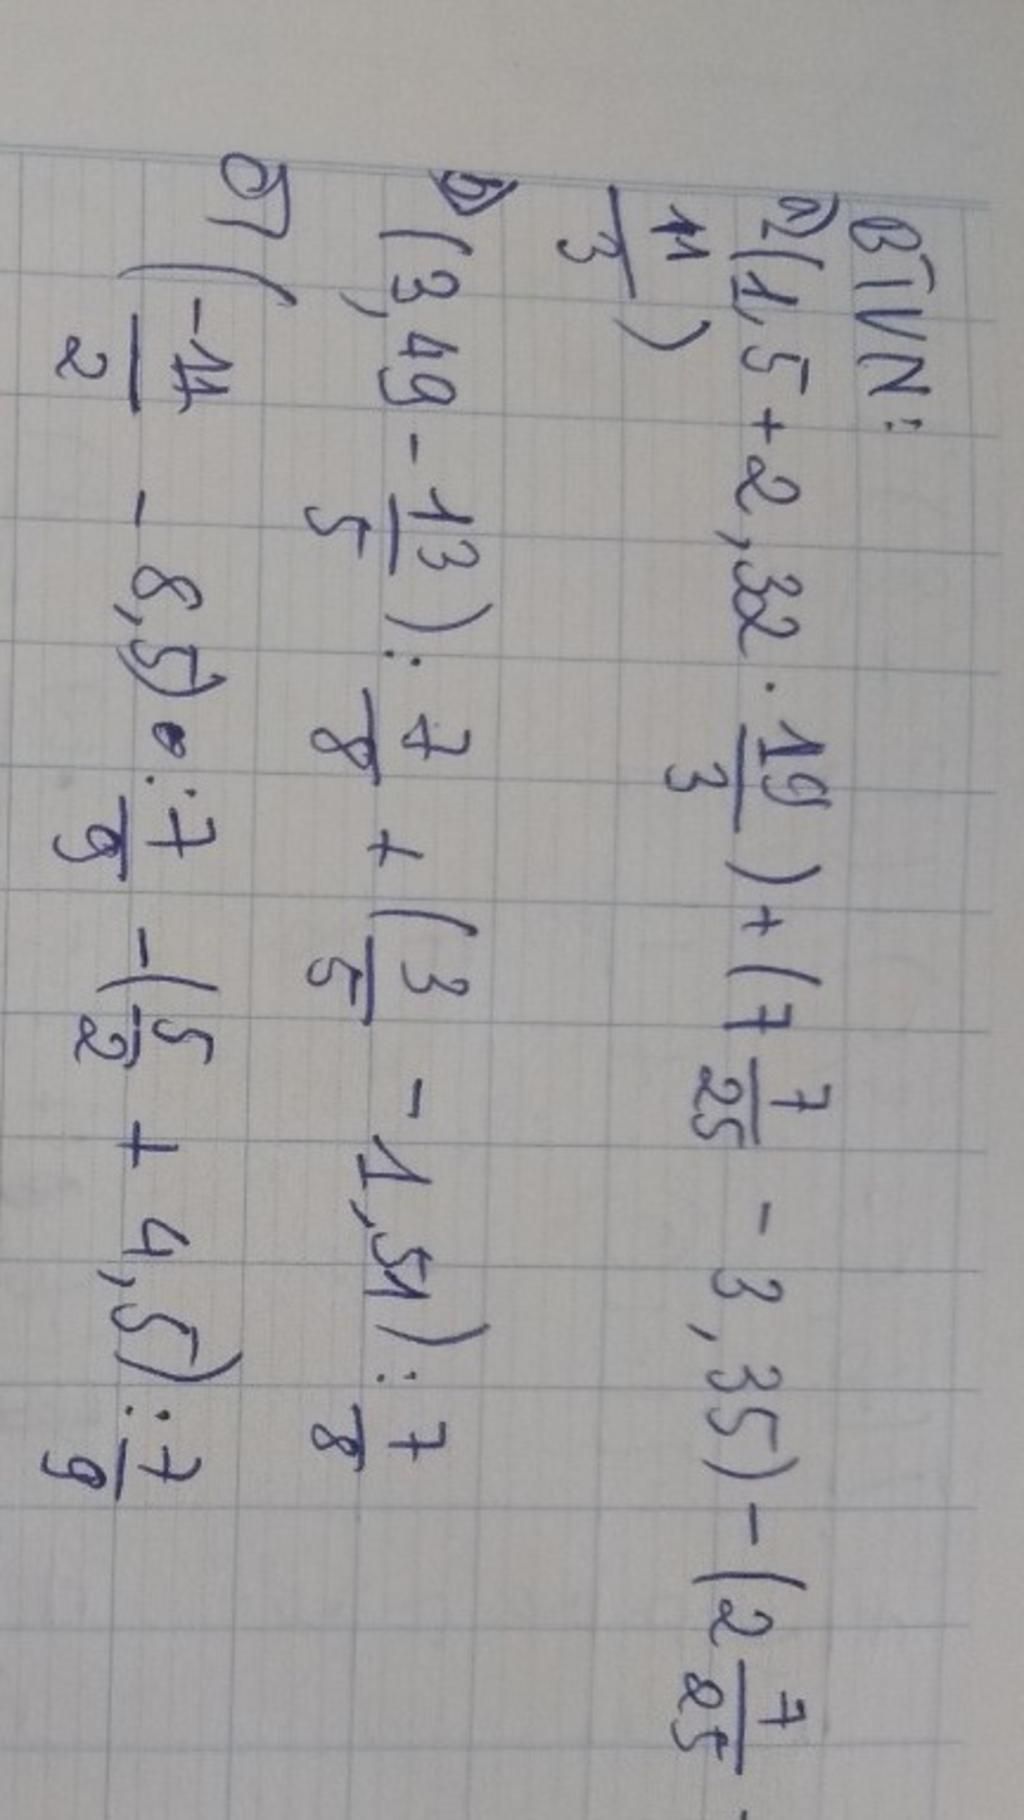 BTVN:
a) (1,5 + 2,32 . 19/3) + (7 7/25 - 3,35) - (2 7/25 -
11/3)
b) (3,49 - 13/5) : 7/8 + (3/5 - 1,51) : 7/8
(-11/2 - 8,5) : 7/9 - (5/2 + 4,5) : 7/9